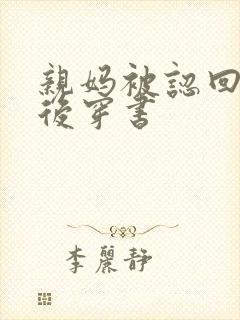 親媽被認回
後穿書
李麗靜